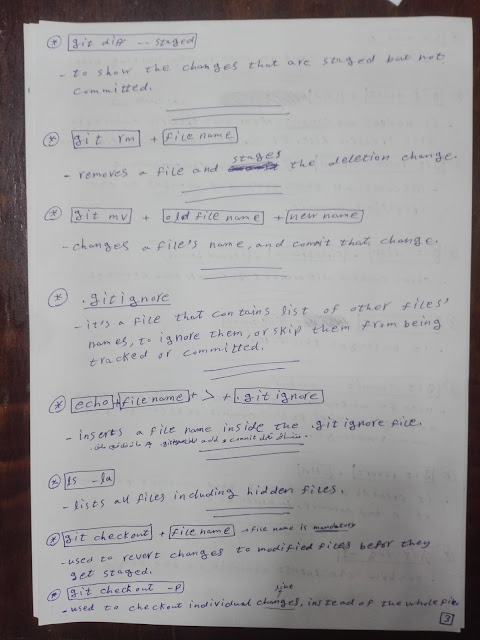 * git diff -- staged
- to show the changes that are staged but not
committed.
* git rm + file name
stages
- removes a file and the deletion change.
* git mv + old file name + new name
- changes a file's name, and commit that change.
* .gitignore
- it's a file that contains list of other files'
names, to ignore them, or skip them from being
tracked or committed.
* echo + file name + > + .git ignore
- inserts a file name inside the .git ignore file.
* ls -la
- lists all files including hidden files.
* git checkout + file name → file name is mandatory
- used to revert changes to modified files befor they
get staged.
* git checkout -p
- used to checkout individual changes, instead of the whole file
3